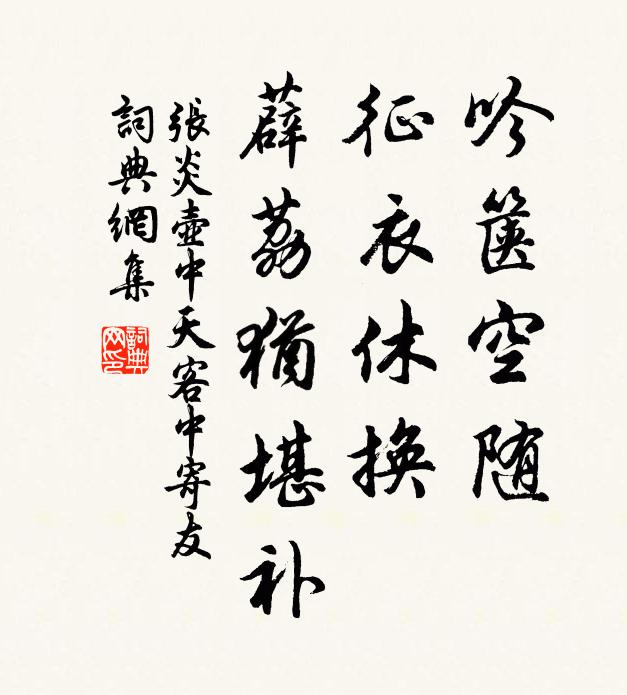 吟篋空随
征衣休換
薜荔猶堪补
張炎壺中天客中寄友
詞典網集
詞典网印